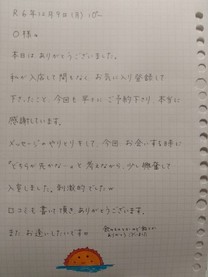 O様へ
本日は、ありがとうございました。
私が入店して間もなく、お気に入り登録して
下さったこと、今回も早くに、ご予約下さり、本当に
感謝しています。
メッセージのやりとりをして、今回、お会いする時に
と考えながら、少し緊張して
入室しました。刺激的でした
口コミも書いて頂き、ありがとうございます。
また、お逢いしたいです